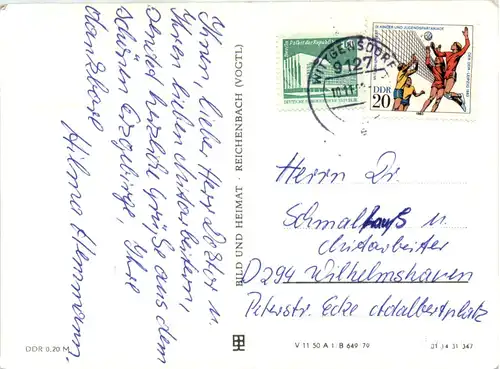 Ihnen lieber Herr Doktor u.
Ihren lieben Mitarbeitern,
sendet herzliche Grüße aus dem
schönen Erzgebirge, Ihre
dankbare
Hilma Hemmann.
BILD UND HEIMAT · REICHENBACH (VOGTL)
Palast der Republik
DEUTSCHE DEMOKRATISCHE REPUBLIK
WITTGENSDORF
9127
DDR
20
Herrn Dr.
Schmalfuß u.
Mitarbeiter
D294 Wilhelmshaven
Peterstr. Ecke Adalbertplatz
DDR 0,20 M
V 11 50 A 1/B 649/79
01 14 31 347